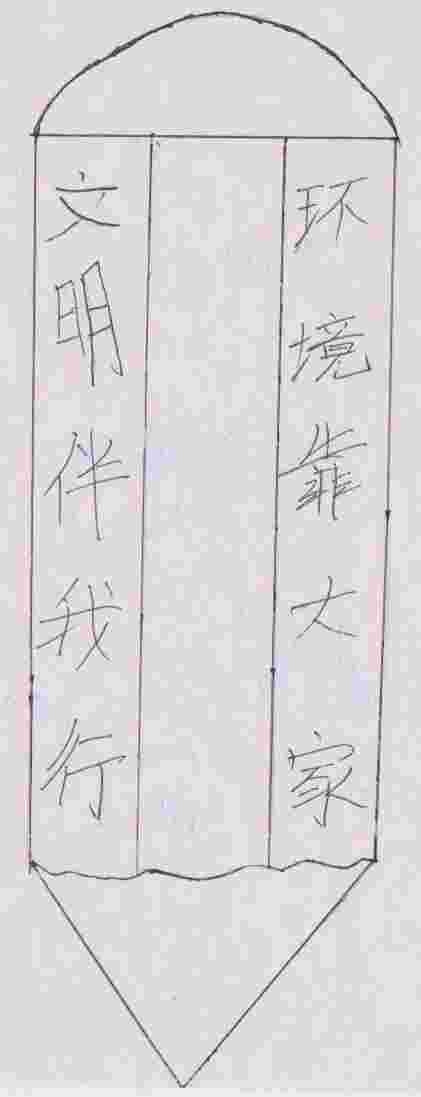 环境靠大家
文明伴我行